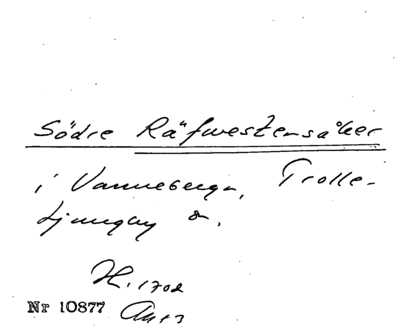 Södre Räfwestensåker
i Vanneberga, Trolle-
Ljungby s.
H. 1702
Nr 10877